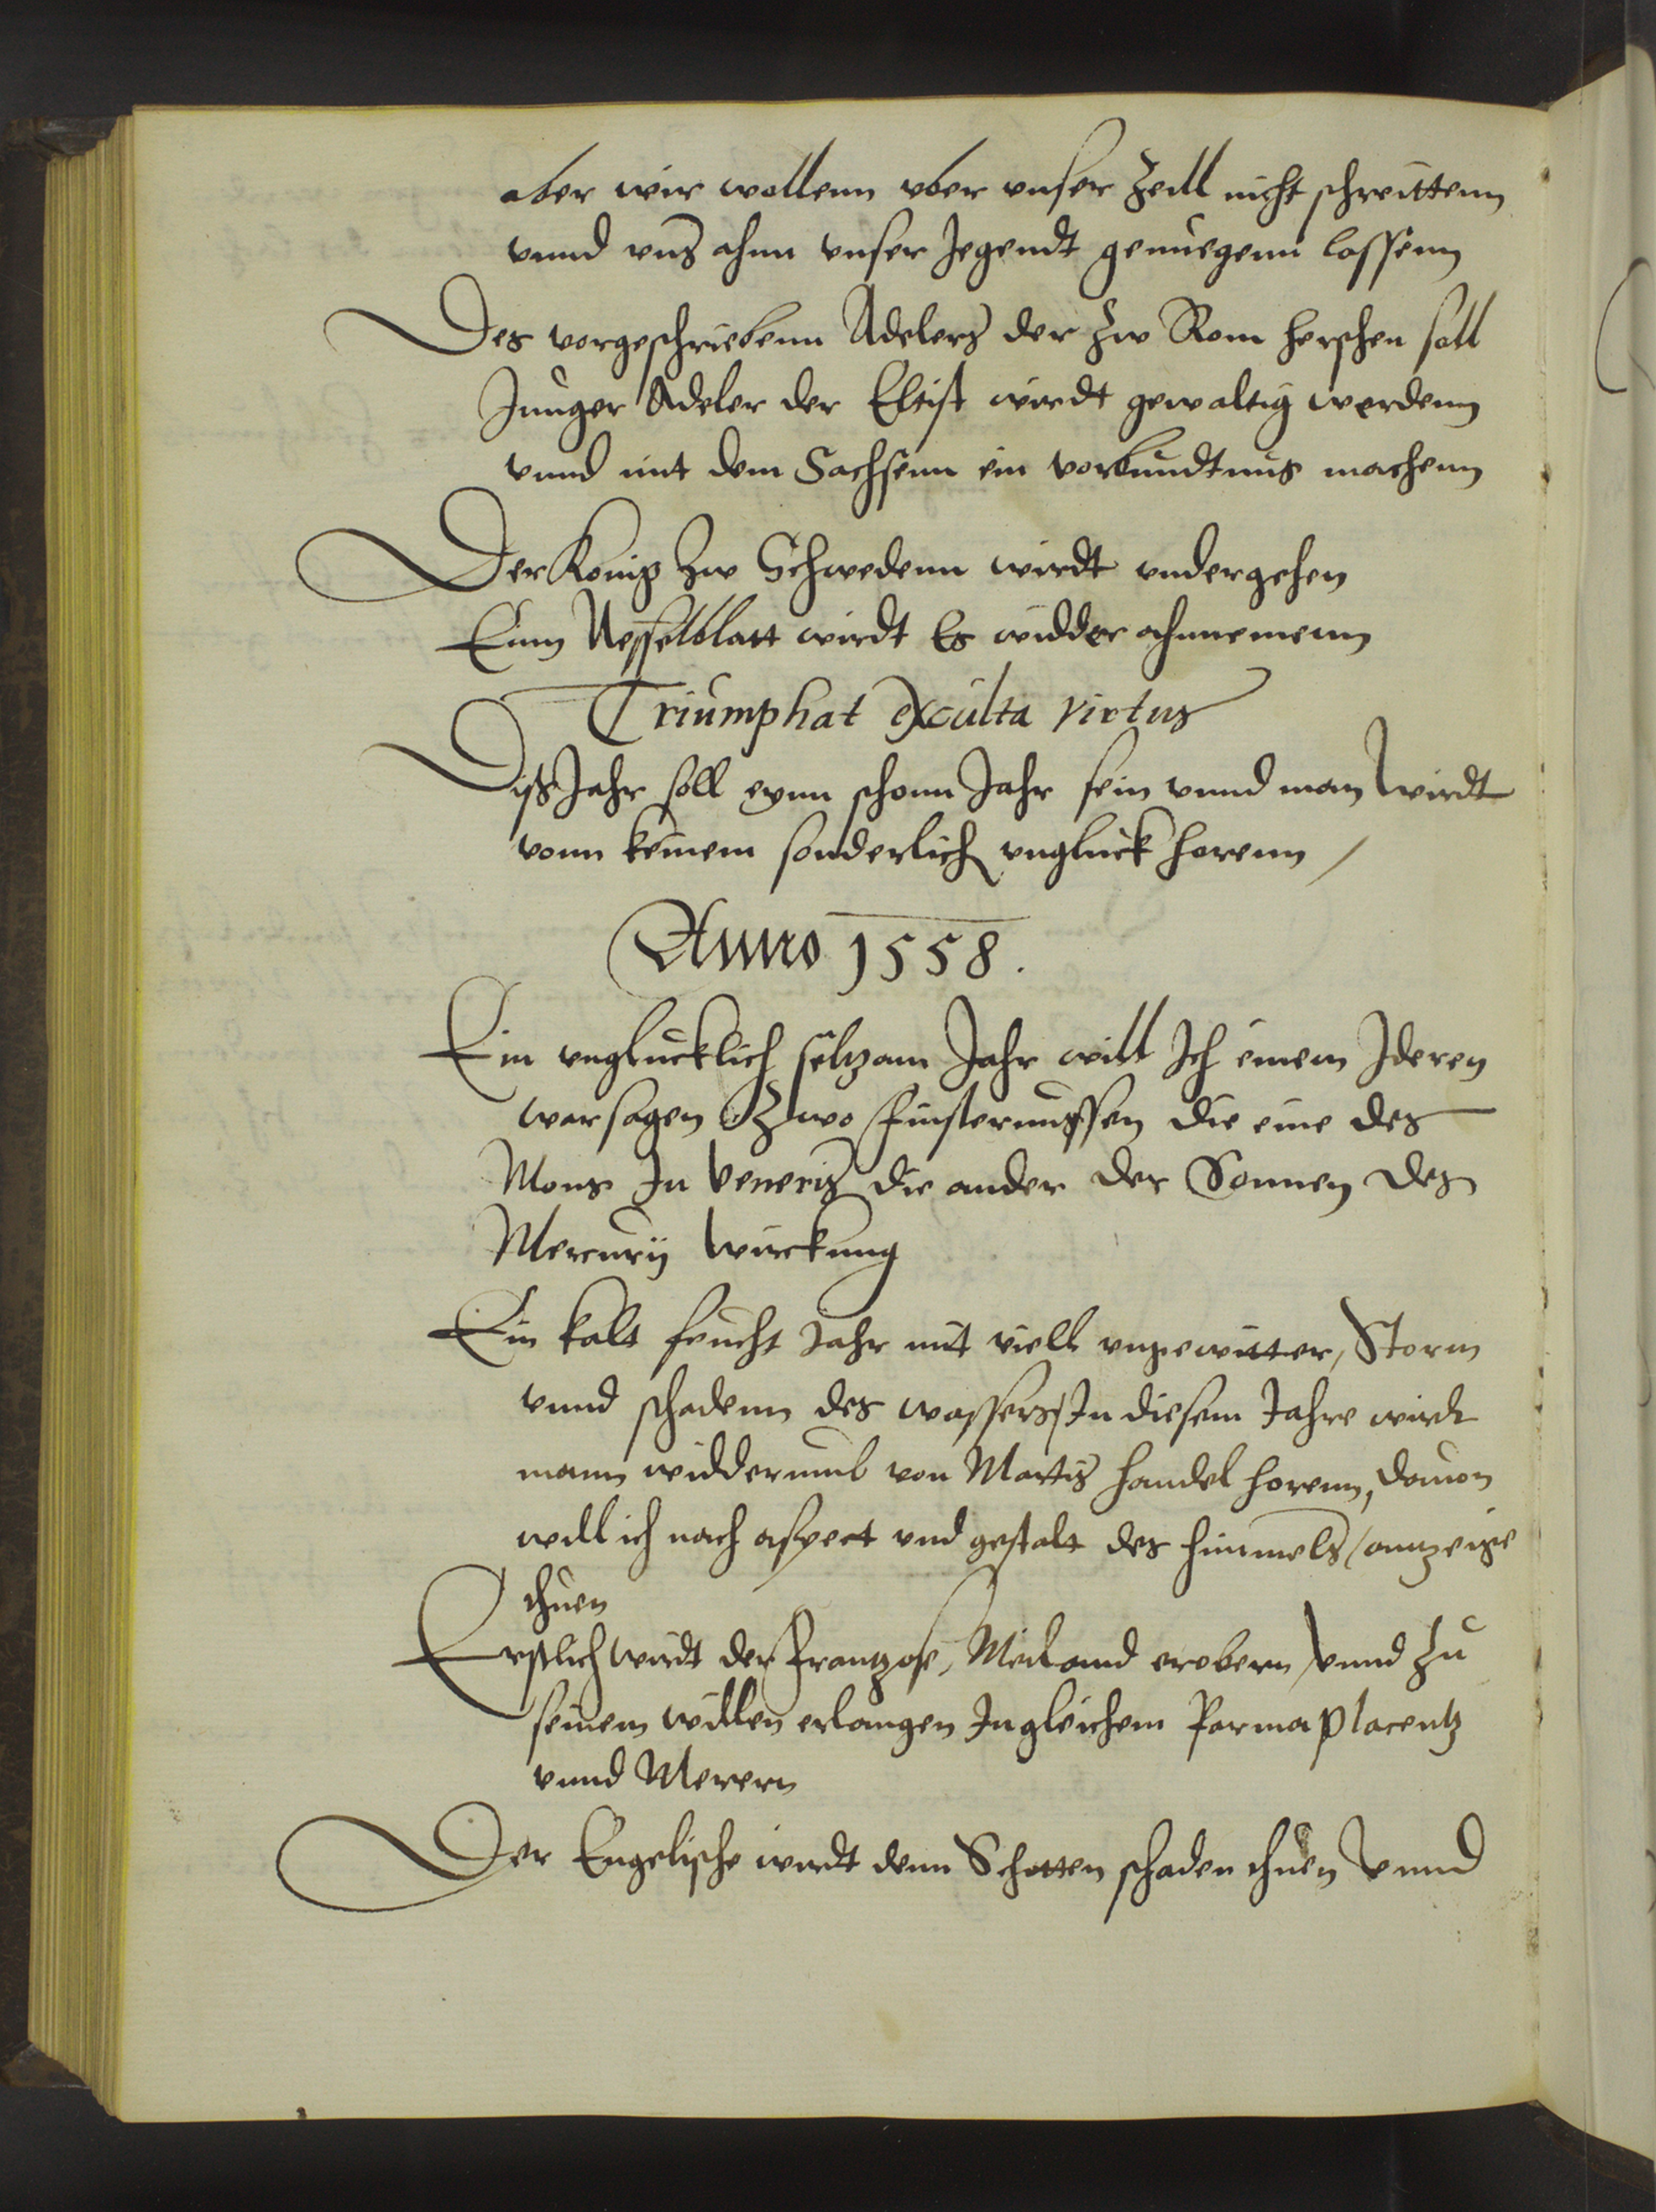 aber wir wollenn vber vnser Zeill nicht schreittenn
vnnd vnß ahnn vnser Jegendt genuegenn lossenn
Des vorgeschriebenn Adelerß der Zw Rom herschen soll
Junger Adeler der Eltist wirdt gewaltig werdenn
vnnd mit dem Sachsenn ein vorbundtnus machenn
Der Konig Zw Schwedenn wirdt vndergehen
Einn Nesselblatt wirdt Es widder ahnnemenn
Triumphat exculta virtus
Diß Jahr soll eynn schonn Jahr sein vnnd man wirdt
vonn keinem sonderlich vngluck horenn /
Anno 1558.
Ein vnglucklich seltzam Jahr will Ich einem Jderen
warsagen Zwo finsternussen die eine des
Mons In Veneris die ander der Sonnen des
Mercurij wirckung
Ein kalt feucht Jahr mit viell vngewitter, Storm
vnnd schadenn des wassers In diesem Jahre wirdt
mann widdermul von Martis handel horenn, dauon
will ich nach aspect vnd gestalt des himmels / antzeige
thuen
Erstlich wirdt der Frantzose, Meiland erobern / vnnd Zu
seinem willen erlangen Ingleichem Parma Placentz
vnnd Merern
Der Engelische wirdt denn Schotten schaden thuen vnnd